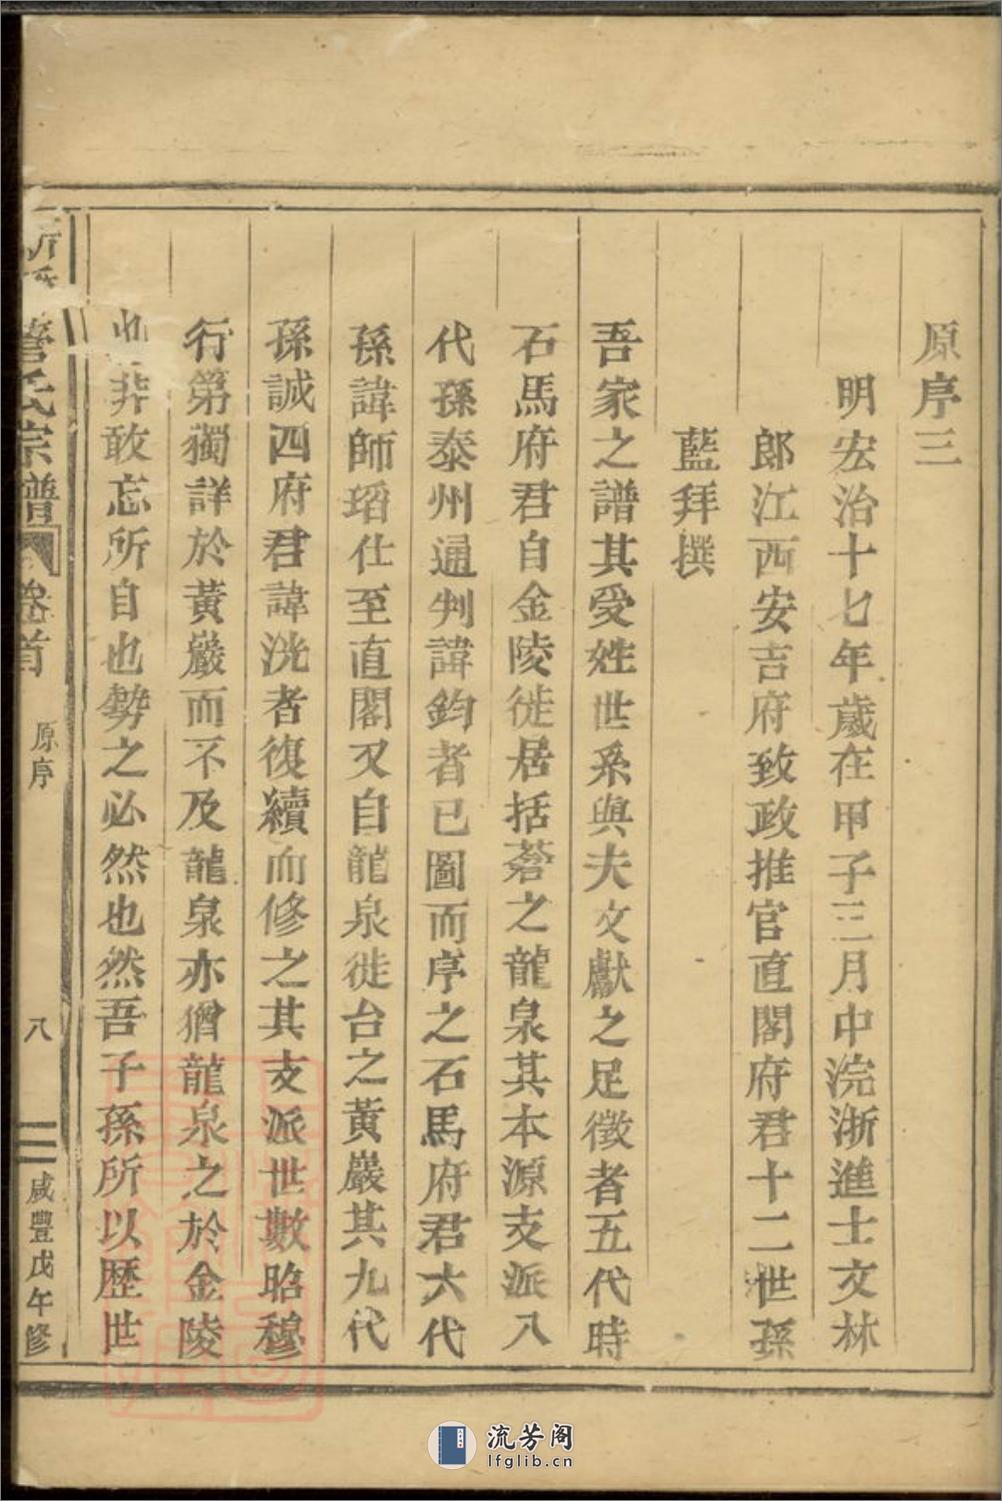 原序三
明宏治十七年歲在甲子三月中浣浙進士文林
郎江西安吉府致政推官直閣府君十二世孫
藍拜撰
吾家之譜其受姓世系與夫文獻之足徵者五代時
石馬府君自金陵徙居括蒼之龍泉其本源支派八
代孫泰州通判諱鈞者已圖而序之石馬府君六代
孫諱師瑫仕至直閣又自龍泉徙台之黃巖其九代
孫誠四府君諱洸者復續而修之其支派世數昭穆
行第獨詳於黃巖而不及龍泉亦猶龍泉之於金陵
也非敢忘所自也勢之必然也然吾子孫所以歷世
氏宗譜 卷首 原序 八 咸豐戊午修
流芳阁
lfglib.cn